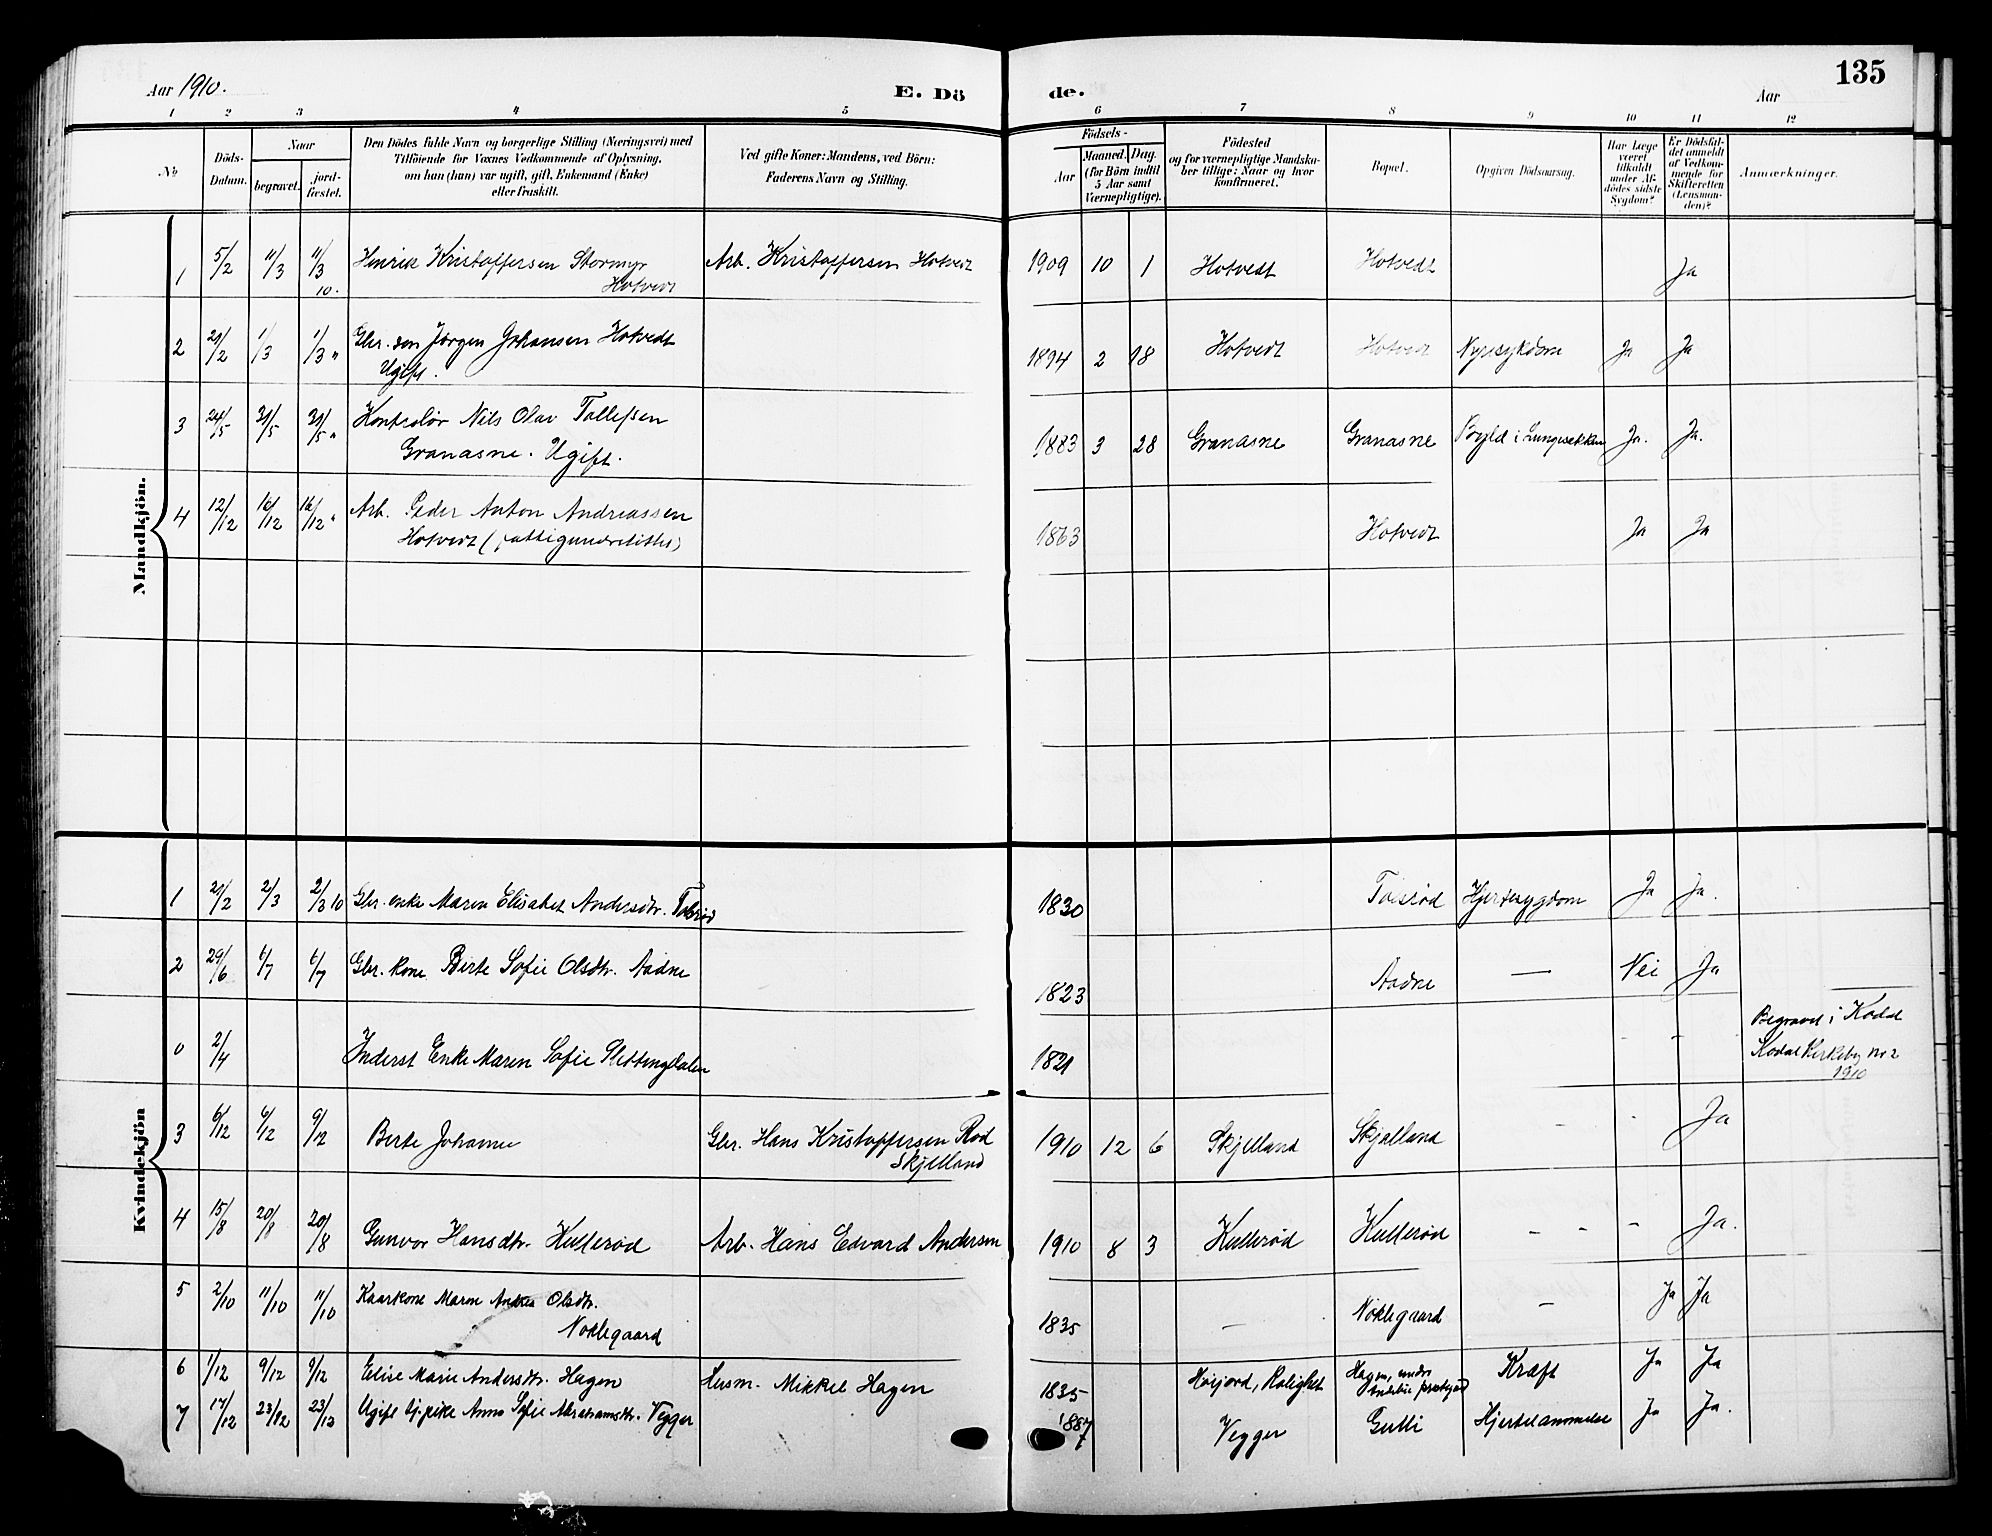 135
Aar 1910.
E. Dö de.
Aar
1 2 3 4 5 6 7 8 9 10 11 12
No
Döds-
Datum.
Naar
begravet.
jord-
fæstet.
Den Dödes fulde Navn og borgerlige Stilling (Næringsvei) med
Tilföiende for Voxnes Vedkommende af Oplysning,
om han (hun) var ugift, gift, Enkemand (Enke)
eller fraskilt.
Ved gifte Koner: Mandens, ved Börn:
Faderens Navn og Stilling.
Födsels-
Aar
Maaned.
Dag.
(for Börn indtil
5 Aar samt
Værnepligtige).
Födested
og for værnepligtige Mandska-
ber tillige: Naar og hvor
konfirmeret.
Bopæl.
Opgiven Dödsaarsag.
Har Læge
været
tilkaldt
under Af-
dödes sidste
Sygdom?
Er Dödsfal-
det anmeldt
af Vedkom-
mende for
Skifteretten
(Lensman-
den)?
Anmærkninger.
Mandkjön.
1 5/2 11/3 11/3 10. Henrik Kristoffersen Stormyr Arb. Kristoffersen Hotvedt 1909 10 1 Hotvedt Hotvedt Ja
Hotvedt
2 21/2 1/3 1/3 " Gbr. søn Jørgen Johansen Hotvedt 1894 2 18 Hotvedt Hotvedt Nyresykdom Ja Ja
Ugift.
3 24/5 31/5 31/5 " Kontrolør Nils Olav Tollefsen 1883 3 28 Granasne Granasne Byld i Lungesekken Ja. Ja.
Granasne. Ugift.
4 12/12 16/12 16/12 " Arb. Peder Anton Andreassen 1863 Hotvedt Ja Ja
Hotvedt (fattigunderstøttet)
Kvindekjön
1 21/2 2/3 2/3 10 Gbr. enke Maren Elisabet Andersdtr. Tolsrød 1830 Tolsrød Hjertesygdom Ja Ja.
2 29/6 6/7 6/7 Gbr. kone Berte Sofie Olsdtr. Aadne 1823 Aadne — Nei Ja
0 2/4 Inderst Enke Maren Sofie Slettingdalen 1821 - - Begravet i Kodal
Kodal Kirkeby nr 2
1910
3 6/12 6/12 9/12 Berte Johanne Gbr. Hans Kristoffersen Rød 1910 12 6 Skjelland Skjelland - - Ja
Skjelland
4 15/8 20/8 20/8 Gunvor Hansdtr. Kullerød Arb. Hans Edvard Andersen 1910 8 3 Kullerød Kullerød - - - Ja.
5 2/10 11/10 11/10 Kaarkone Maren Andrea Olsdtr. 1835 — Noklegaard — Ja Ja
Noklegaard
6 1/12 9/12 9/12 Elise Marie Andersdtr. Hagen Husm. Mikkel Hagen 1835 Høijord, Rolighet Hagen, under Andebu prestegård Kræft Ja Ja
7 17/12 23/12 23/12 Ugift tj.pike Anna Sofie Abrahamsdtr. Vegger 1887 Vegger Gulli Hjertelammelse Ja Ja.